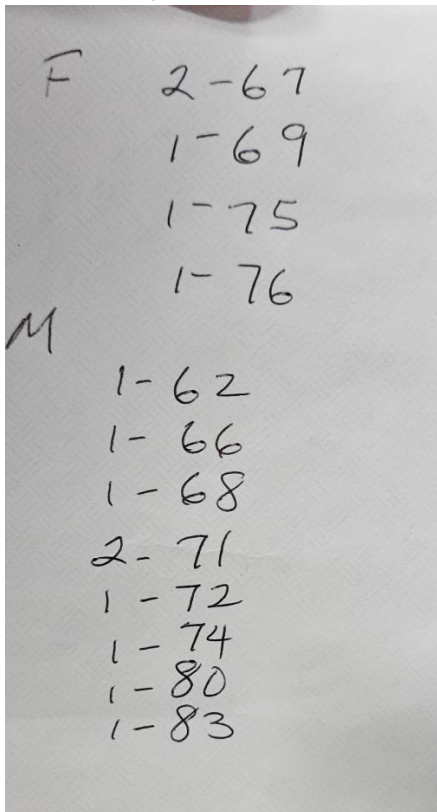 F 2-67
1-69
1-75
1-76
M
1-62
1-66
1-68
2-71
1-72
1-74
1-80
1-83